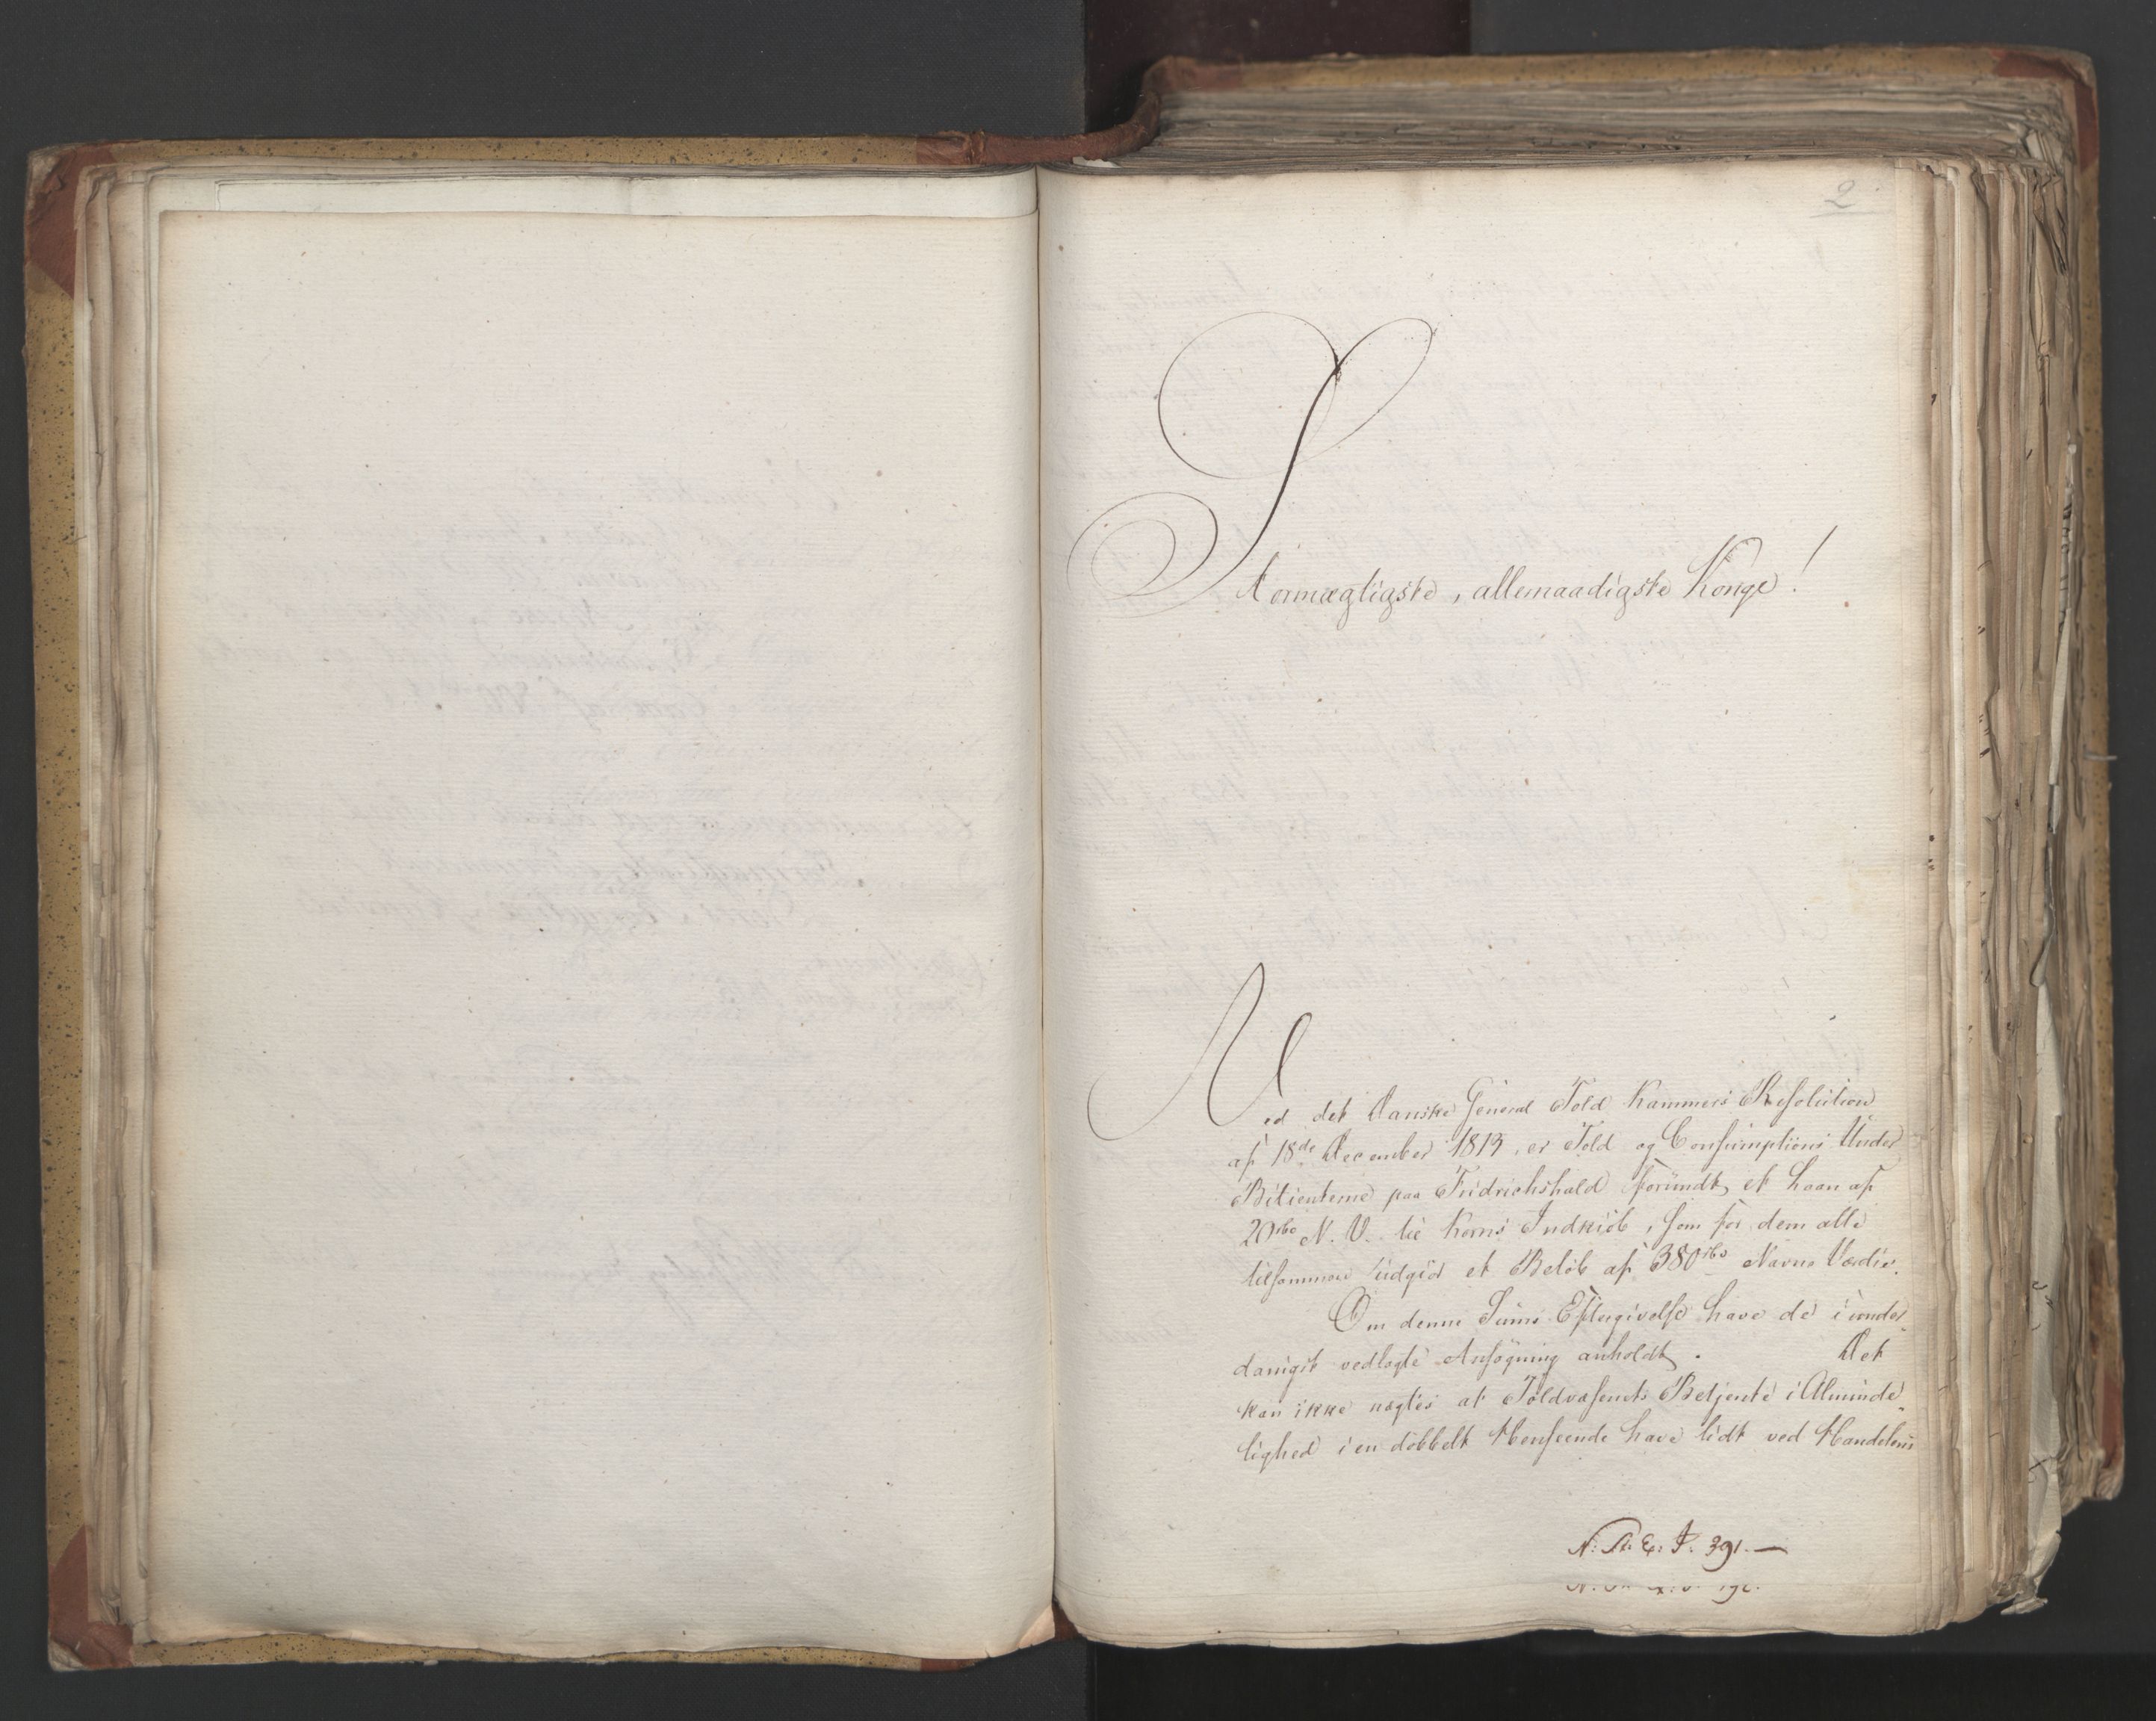 2
Stormægtigste, allernaadigste Konge!
Ved det Danske General Told Kammers Resolution
af 18de December 1813, er Told og Consumptions Under
Betienterne paa Fridrichshald forundt et Laan af
20 rbd N. V. til Korns Indkiöb, som for dem alle
tilsammen udgiör et Belöb af 380 rbd Navne Værdie.
Om denne Sums Eftergivelse have de i under-
danigst vedlagte Ansögning anholdt. Det
kan ikke nægtes at Toldvæsenets Betjente i Alminde-
lighed i en dobbelt Henseende have lidt ved Handelens
N: R: E: J. 391.—